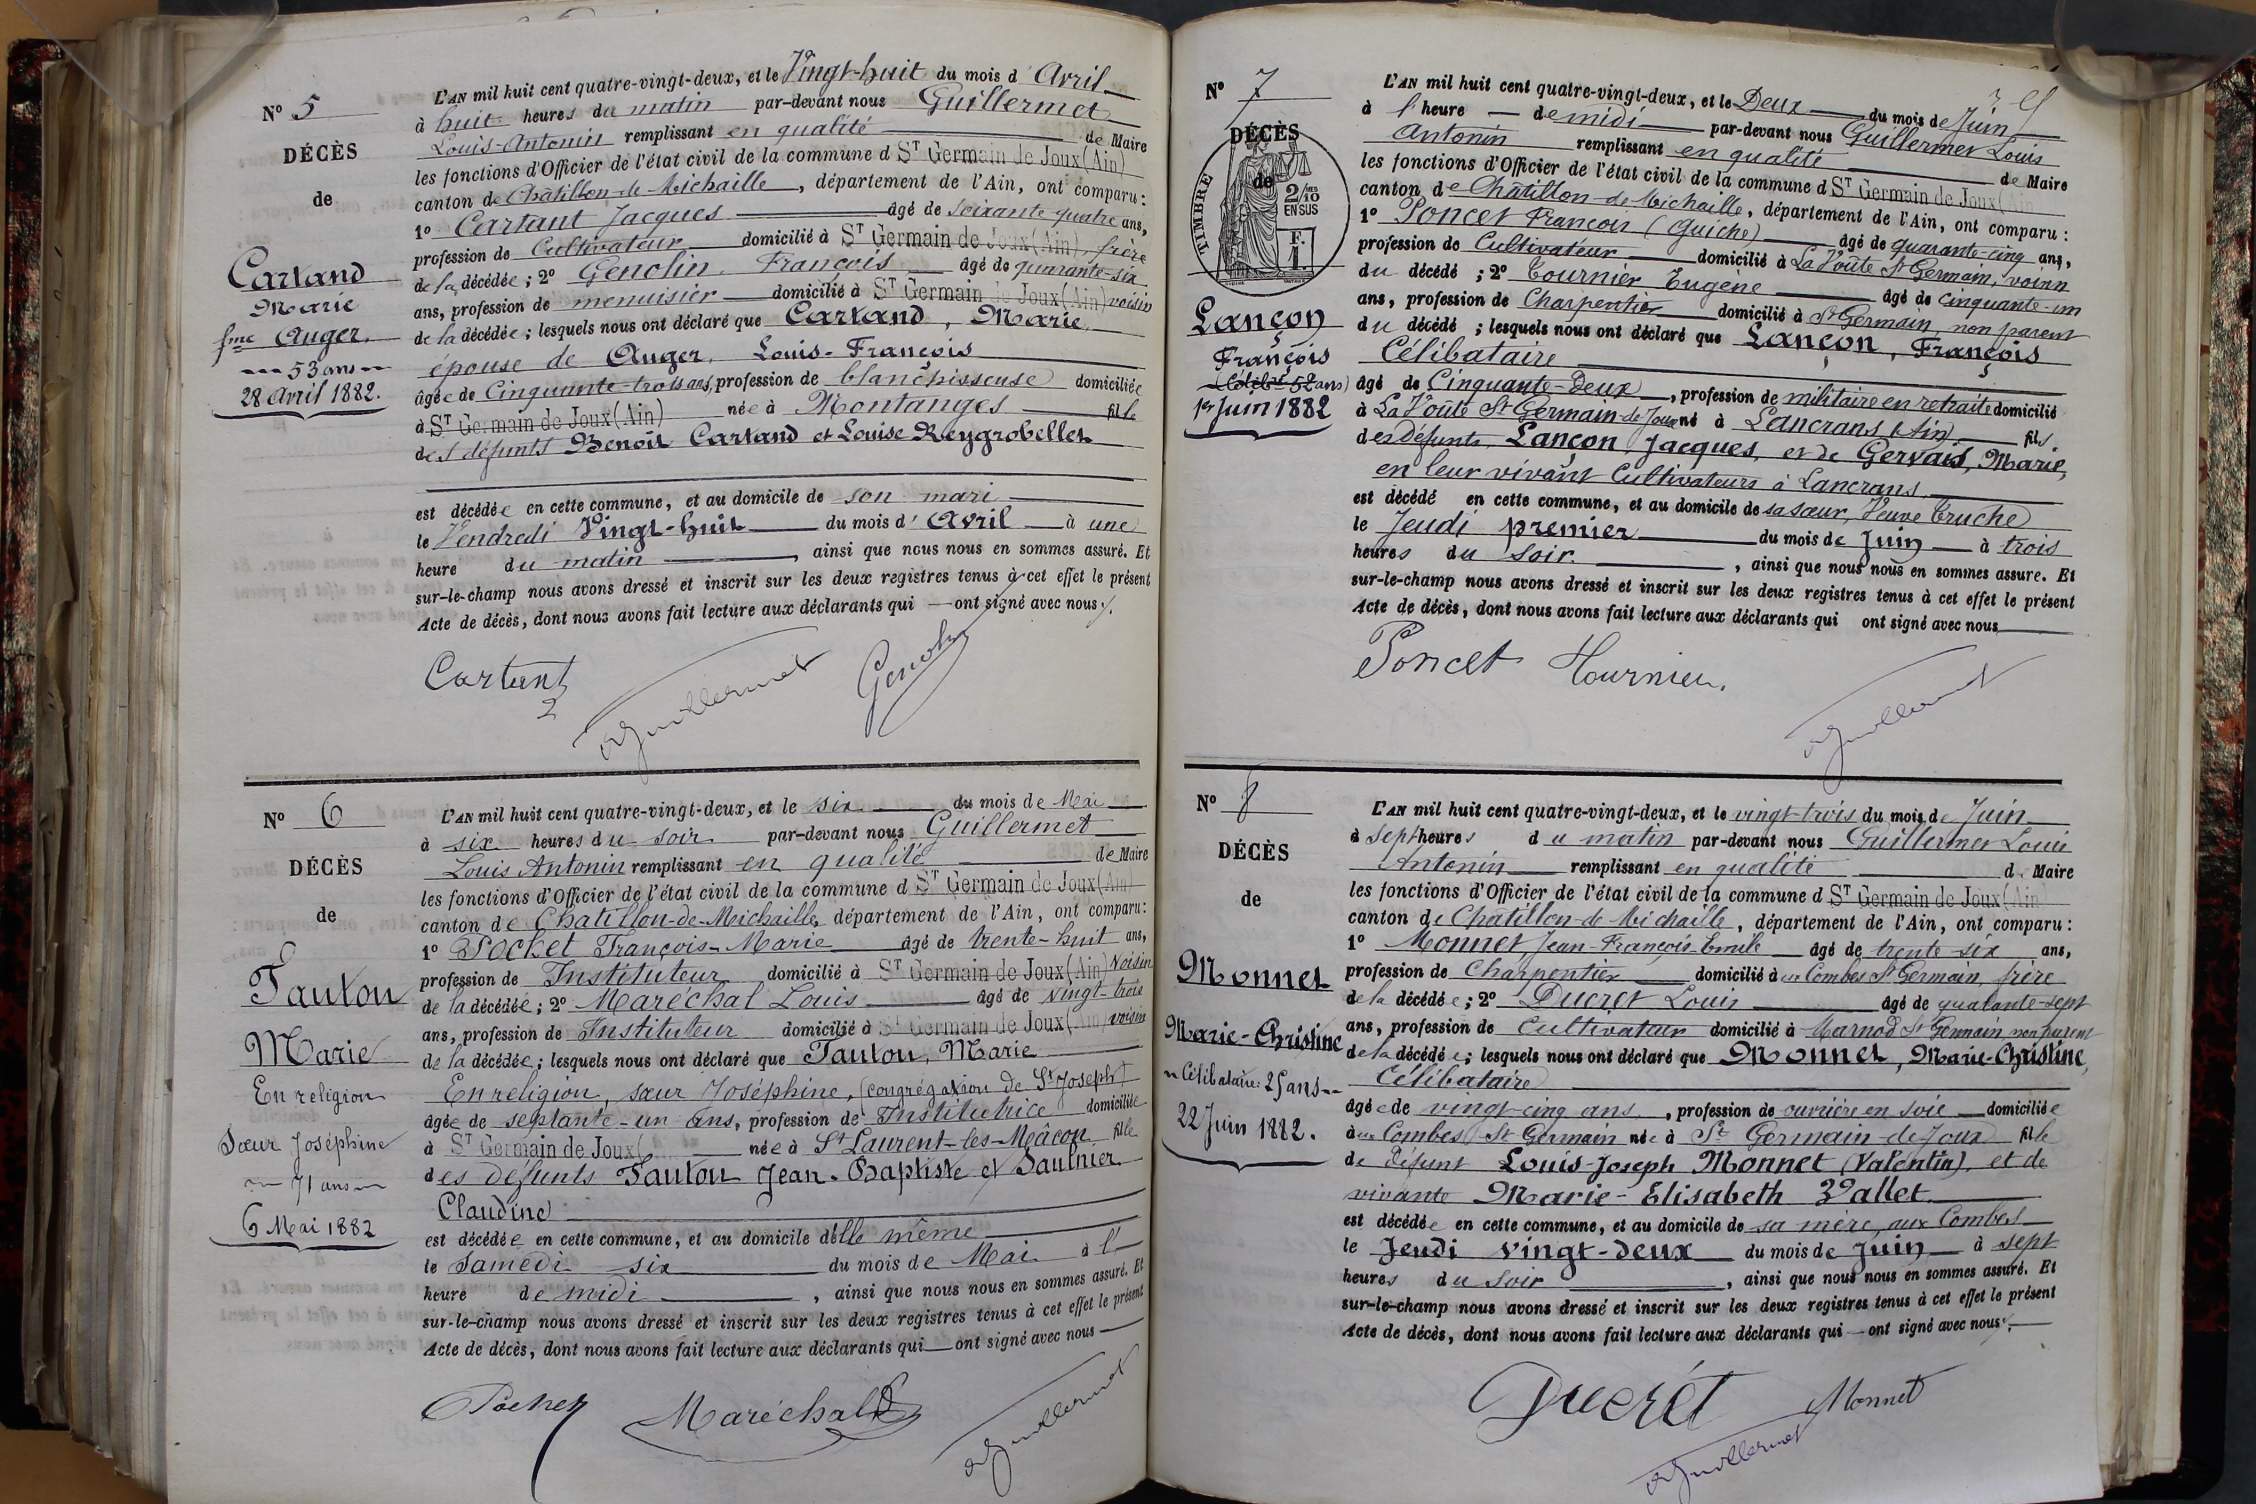 N° 5
DÉCÈS
de
Cartand
Marie
fme Auger.
53 ans
28 Avril 1882.
L'AN mil huit cent quatre-vingt-deux, et le Vingt-huit du mois d'Avril
à huit heures du matin par-devant nous Guillermet
Louis-Antonin remplissant en qualité de Maire
les fonctions d'Officier de l'état civil de la commune d ST Germain de Joux (Ain)
canton de Châtillon-de-Michaille, département de l'Ain, ont comparu:
1° Cartant Jacques âgé de soixante-quatre ans,
profession de Cultivateur domicilié à ST Germain de Joux (Ain), frère
de la décédée; 2° Genolin François âgé de quarante-six
ans, profession de menuisier domicilié à ST Germain de Joux (Ain) voisin
de la décédée; lesquels nous ont déclaré que Cartand, Marie
épouse de Auger, Louis-François
âgée de Cinquante-trois ans, profession de blanchisseuse domiciliée
à ST Germain de Joux (Ain) née à Montanges fille
des défunts Benoît Cartand et Louise Reygrobellet
est décédée en cette commune, et au domicile de son mari
le Vendredi Vingt-huit du mois d'Avril à une
heure du matin, ainsi que nous nous en sommes assuré. Et
sur-le-champ nous avons dressé et inscrit sur les deux registres tenus à cet effet le présent
Acte de décès, dont nous avons fait lecture aux déclarants qui ont signé avec nous.
Cartant
Guillermet
Genolin
N° 6
DÉCÈS
de
Tauton
Marie
En religion
Sœur Joséphine
71 ans
6 Mai 1882
L'AN mil huit cent quatre-vingt-deux, et le six du mois de Mai
à six heures du soir par-devant nous Guillermet
Louis Antonin remplissant en qualité de Maire
les fonctions d'Officier de l'état civil de la commune d ST Germain de Joux (Ain)
canton de Chatillon-de-Michaille, département de l'Ain, ont comparu:
1° Pochet François-Marie âgé de trente-huit ans,
profession de Instituteur domicilié à ST Germain de Joux (Ain) Voisin
de la décédée; 2° Maréchal Louis âgé de vingt-trois
ans, profession de Instituteur domicilié à ST Germain de Joux (Ain) voisin
de la décédée; lesquels nous ont déclaré que Tauton, Marie
En religion, sœur Joséphine, (congrégation de St Joseph)
âgée de septante-un ans, profession de Institutrice domiciliée
à ST Germain de Joux ( née à St Laurent-les-Mâcon fille
des défunts Tauton Jean-Baptiste et Saulnier
Claudine
est décédée en cette commune, et au domicile d'elle même
le Samedi six du mois de Mai à l'
heure de midi, ainsi que nous nous en sommes assuré. Et
sur-le-champ nous avons dressé et inscrit sur les deux registres tenus à cet effet le présent
Acte de décès, dont nous avons fait lecture aux déclarants qui ont signé avec nous
Pochet
Maréchal
Guillermet
N° 7
DÉCÈS
de
TIMBRE
2/10 EN SUS
F. 1
Lançon
François
(Célibre 52 ans)
1er Juin 1882
L'AN mil huit cent quatre-vingt-deux, et le Deux du mois de Juin
à l'heure de midi par-devant nous Guillermet Louis
Antonin remplissant en qualité de Maire
les fonctions d'Officier de l'état civil de la commune d ST Germain de Joux (Ain
canton de Châtillon-de-Michaille, département de l'Ain, ont comparu:
1° Poncet François (Guiche) âgé de quarante-cinq ans,
profession de Cultivateur domicilié à La Voûte St Germain, voisin
du décédé; 2° Tournier Eugène âgé de cinquante-un
ans, profession de Charpentier domicilié à St Germain, non parent
du décédé; lesquels nous ont déclaré que Lançon, François
Célibataire
âgé de Cinquante-Deux, profession de militaire en retraite domicilié
à La Voûte St Germain-de-Joux né à Lancrans (Ain) fils
des défunts, Lançon, Jacques, et de Gervais, Marie,
en leur vivant Cultivateurs à Lancrans
est décédé en cette commune, et au domicile de sa sœur, Veuve Truche
le Jeudi premier du mois de Juin à trois
heures du soir, ainsi que nous nous en sommes assuré. Et
sur-le-champ nous avons dressé et inscrit sur les deux registres tenus à cet effet le présent
Acte de décès, dont nous avons fait lecture aux déclarants qui ont signé avec nous
Poncet
Tournier
Guillermet
N° 8
DÉCÈS
de
Monnet
Marie-Christine
Célibataire 25 ans
22 Juin 1882.
L'AN mil huit cent quatre-vingt-deux, et le vingt-trois du mois de Juin
à sept heures du matin par-devant nous Guillermet Louis
Antonin remplissant en qualité de Maire
les fonctions d'Officier de l'état civil de la commune d ST Germain de Joux (Ain
canton de Châtillon-de-Michaille, département de l'Ain, ont comparu:
1° Monnet, Jean-François-Emile âgé de trente-six ans,
profession de Charpentier domicilié à aux Combes St Germain, frère
de la décédée; 2° Ducret Louis âgé de quarante-sept
ans, profession de Cultivateur domicilié à Marnod St Germain, non parent
de la décédée; lesquels nous ont déclaré que Monnet, Marie-Christine,
Célibataire
âgée de vingt-cinq ans, profession de ouvrière en soie domiciliée
à aux Combes St Germain née à St Germain-de-Joux fille
de défunt Louis-Joseph Monnet (Valentin), et de
vivante Marie-Elisabeth Vallet
est décédée en cette commune, et au domicile de sa mère, aux Combes
le Jeudi vingt-deux du mois de Juin à sept
heures du soir, ainsi que nous nous en sommes assuré. Et
sur-le-champ nous avons dressé et inscrit sur les deux registres tenus à cet effet le présent
Acte de décès, dont nous avons fait lecture aux déclarants qui ont signé avec nous.
Ducrét
Monnet
Guillermet